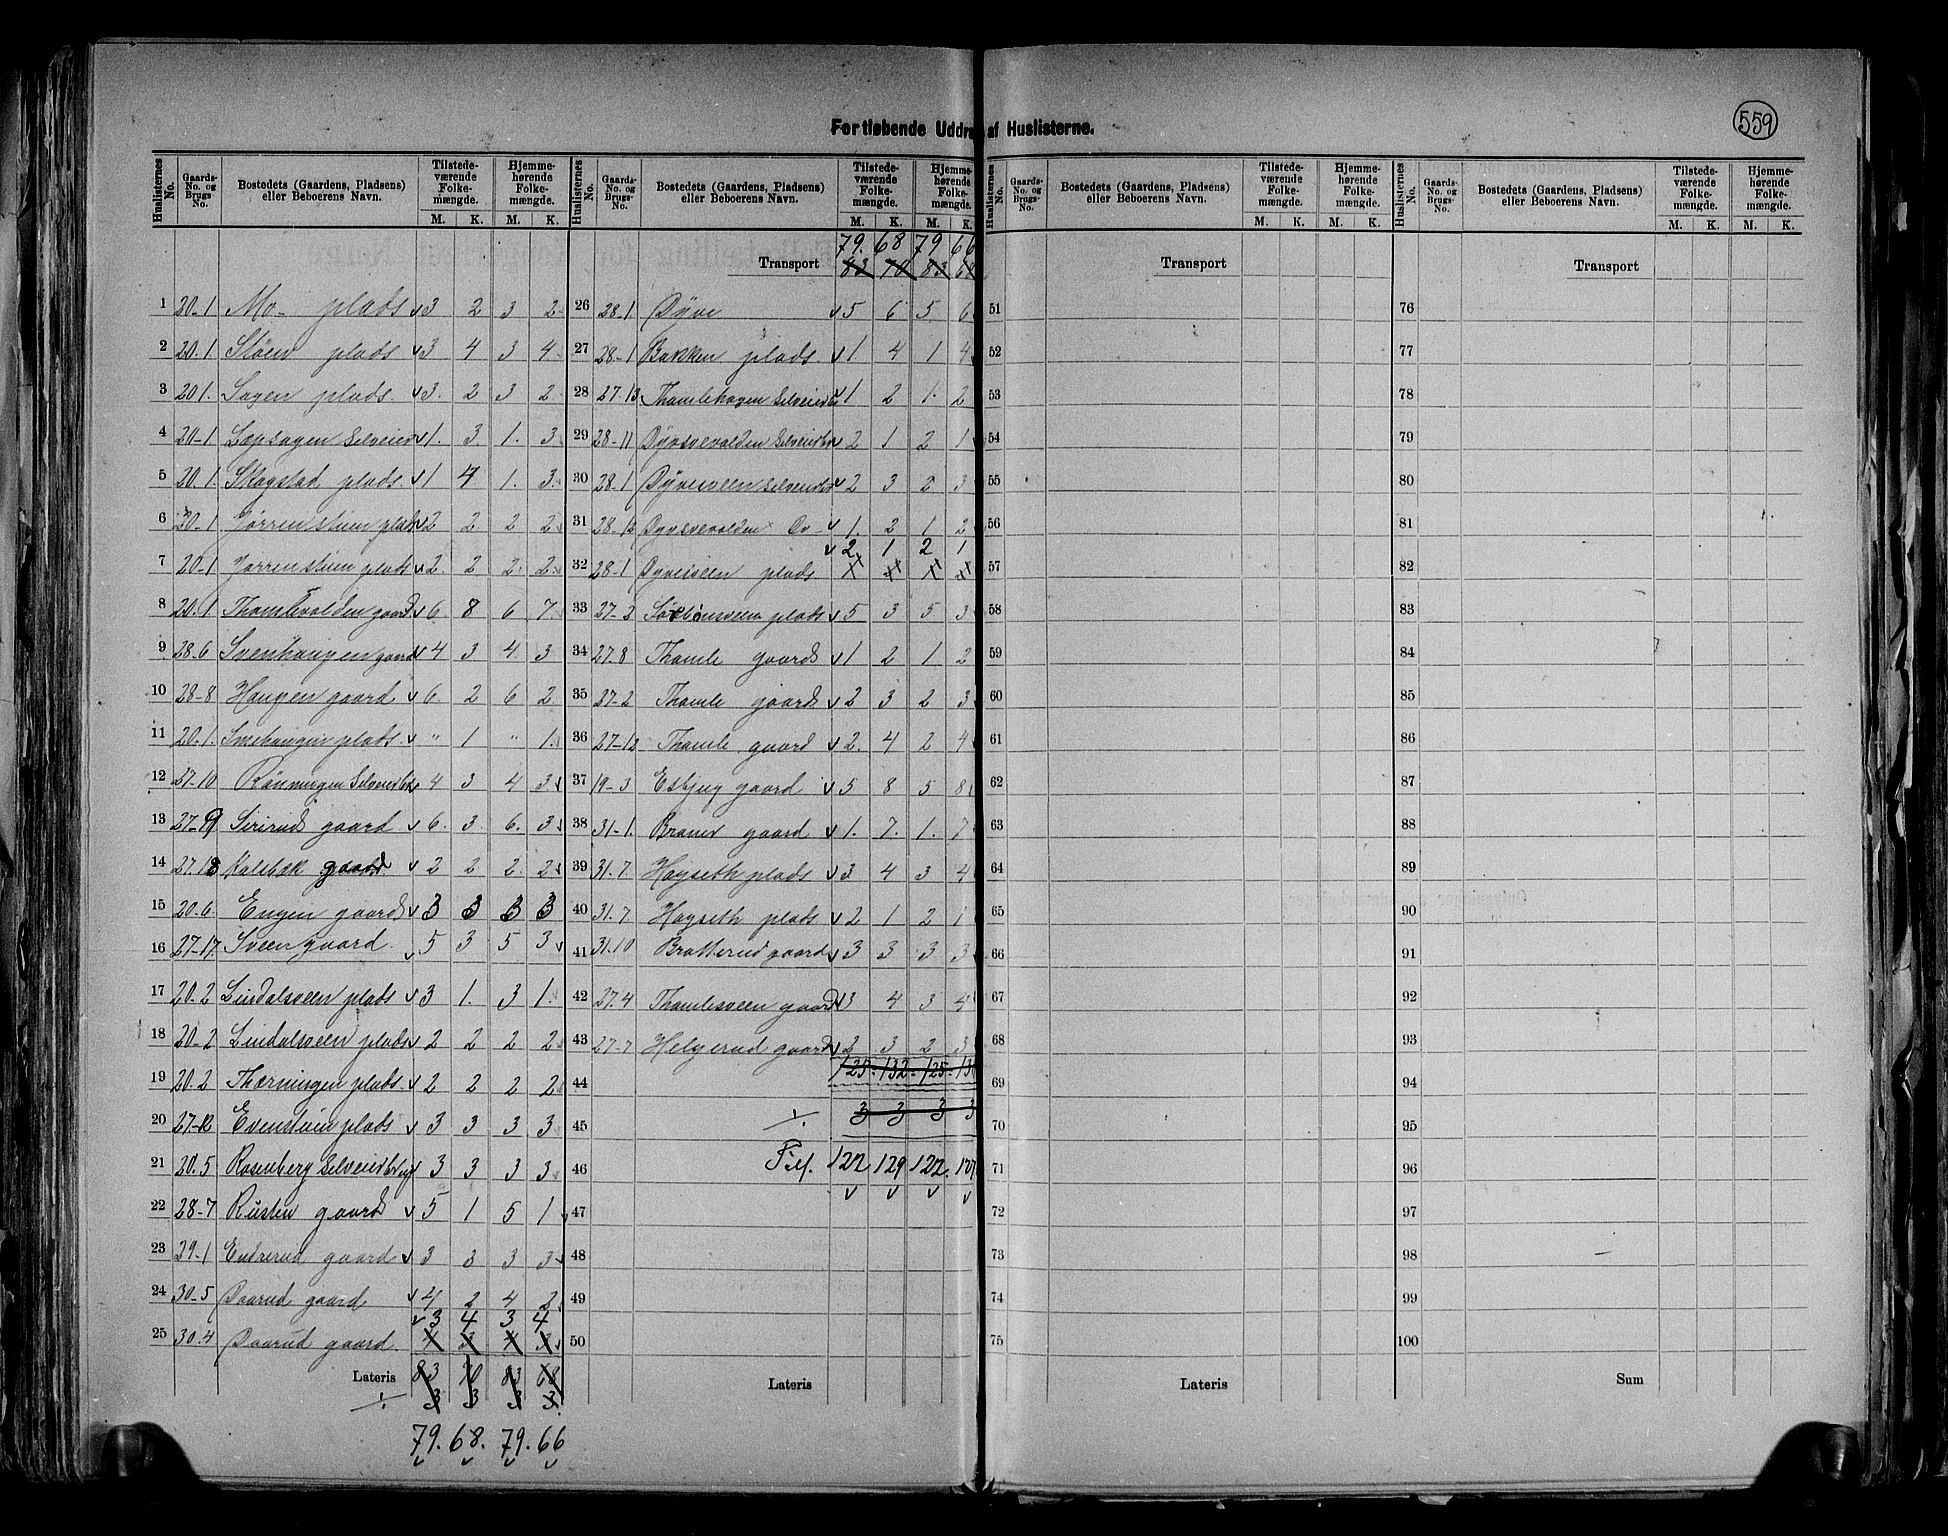 559
Fortløbende Uddrag af Huslisterne.
Huslisternes No. Gaards-No. og Brugs-No. Bostedets (Gaardens, Pladsens) eller Beboerens Navn. Tilstedeværende Folkemængde. M. K. Hjemmehørende Folkemængde. M. K.
1 20-1 Mo- plads 3 2 3 2
2 20.1. Støen plads 3 4 3 4
3 20 1. Sagen plads. 3. 2 3 2
4 20-1 Selveier 1. 3. 1. 3
5 20.1. Skogstad plads. 1 4 1. 3.
6 20-1 Jorrenstuen plads 2 2 2 2
7 20-1 Jorrenstuen plads 2. 2 2. 2
8 20.1. Thamlevolden gaard 6. 8 6 7.
9 28.6 Svenhaugen gaard 4 3 4. 3
10 28-8 Haugen gaard 6. 2 6 2
11 20.1. Smehaugen plads. " 1 " 1.
12 27-10 Rönningen Selveierbr. 4 3 4 3
13 27-9 Sirirud gaard 6. 3. 6. 3
14 27.18 Kalsbak gaard 2 2 2. 2
15 20.6. Engen gaard 3 3 3 3
16 27-17. Sveen gaard. 5 3 5 3
17 20.2 Lindalsveen plads 3 1. 3 1.
18 20-2 Lindalsveen plads 2 2 2 2
19 20.2 Thærningen plads. 2 2 2 2
20 27-12 Evenstuen plads 3 3 3 3
21 20.5 Rosenberg Selveierbrug 3 3 3 3
22 28-7 Rusten gaard 5 1 5 1
23 29-1 Endrerud gaard 3 3 3 3
24 30-5 Daarud gaard 4 2 4 2
3 4 3 4
25 30.4 Daarud gaard. 4 3 4 3
Lateris 83 70 83 68
÷ 3 3 3 3.
79. 68. 79. 66
Huslisternes No. Gaards-No. og Brugs-No. Bostedets (Gaardens, Pladsens) eller Beboerens Navn. Tilstedeværende Folkemængde. M. K. Hjemmehørende Folkemængde. M. K.
79. 68 79 66
Transport 83 70 83 68
26 28.1 Dyve 5 6 5 6
27 28-1 Bakken plads. 1. 4 1 4
28 27-13. Thamlehagen Selveierbr 1 2 1. 2
29 28-11 Dyvsvevolden Selveierbr 2 1 2 1
30 28.1 Dyvesveen Selveierbr 2 3 2 3
31 28-12 Dyvsvevolden Do- 1. 2 1 2
2. 1 2 1
32 28-1 Dyvesveen plads
33 27-3 plads 5 3 5 3
34 27.8 Thamle gaard 1 2 1 2
35 27-2 Thamle gaard 2 3 2 3
36 27-12 Thamle gaard 2. 4 2 4
37 19-3 Esbjug gaard 5 8 5 8
38 31-1. gaard 1. 7. 1. 7
39 31.7 Hagseth plads 3 4 3 4
40 31.7 Hagseth plads 2 1 2 1
41 31.10 Bratterud gaard 3 3 3 3
42 27.4 Thamlesveen gaard 3 4 3 4
43 27-7 Helgerud gaard 2 3 2 3
44 125- 132- 125-
45 ÷ 3 3 3 3
46 122 129 122.
47
48
49
50
Lateris
Huslisternes No. Gaards-No. og Brugs-No. Bostedets (Gaardens, Pladsens) eller Beboerens Navn. Tilstedeværende Folkemængde. M. K. Hjemmehørende Folkemængde. M. K.
Transport
51
52
53
54
55
56
57
58
59
60
61
62
63
64
65
66
67
68
69
70
71
72
73
74
75
Lateris
Huslisternes No. Gaards-No. og Brugs-No. Bostedets (Gaardens, Pladsens) eller Beboerens Navn. Tilstedeværende Folkemængde. M. K. Hjemmehørende Folkemængde. M. K.
Transport
76
77
78
79
80
81
82
83
84
85
86
87
88
89
90
91
92
93
94
95
96
97
98
99
100
Sum